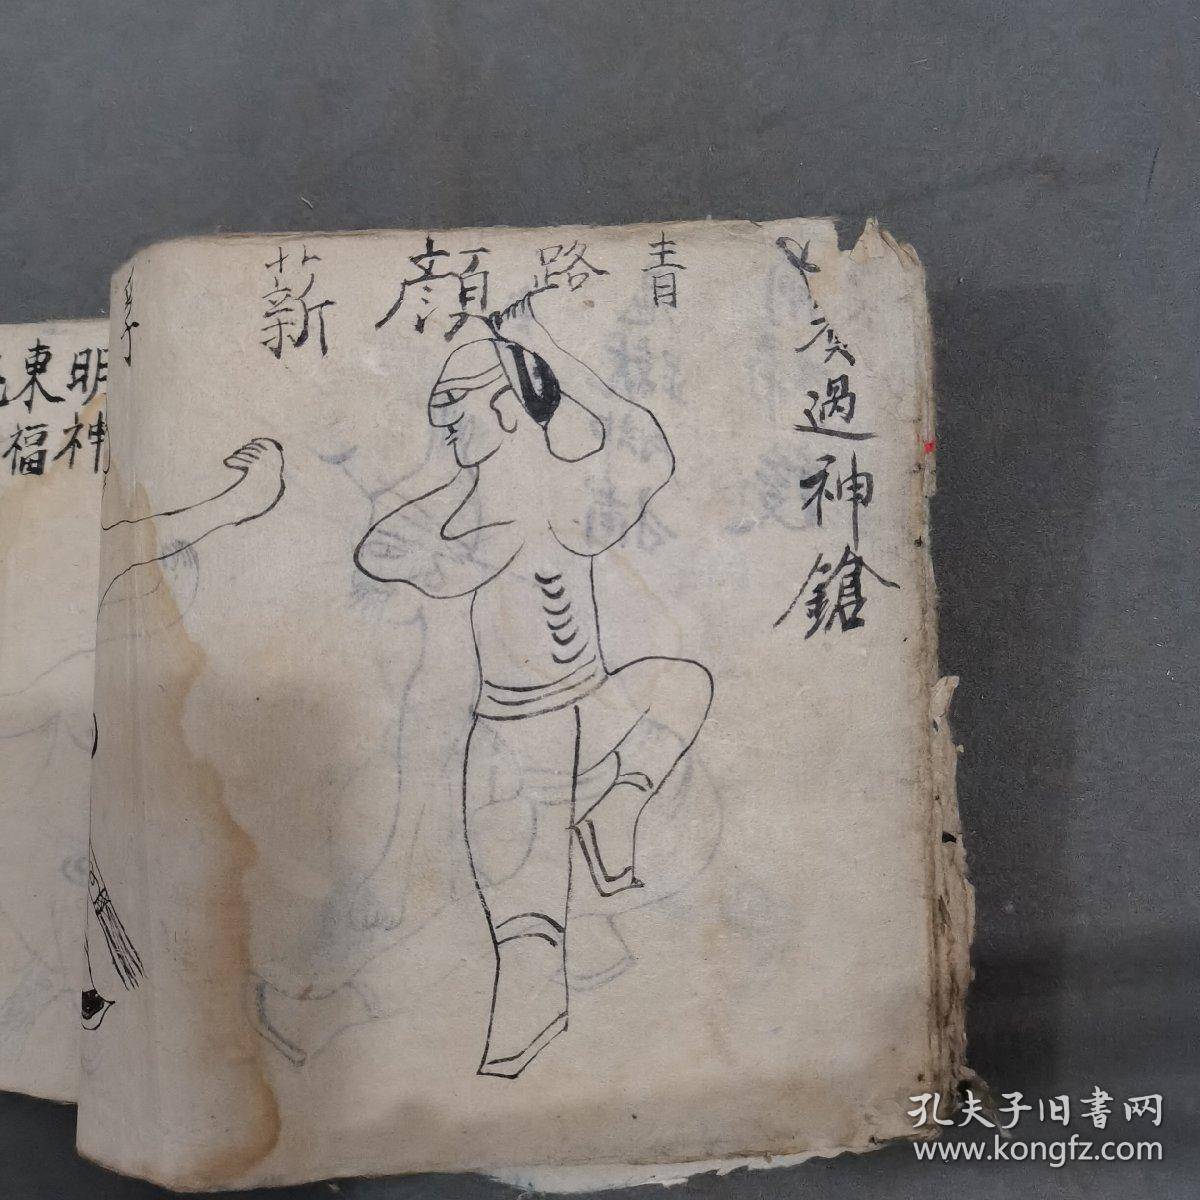 過神鎗
青
路
顏
薪
明神
東福
孔夫子旧書网
www.kongfz.com